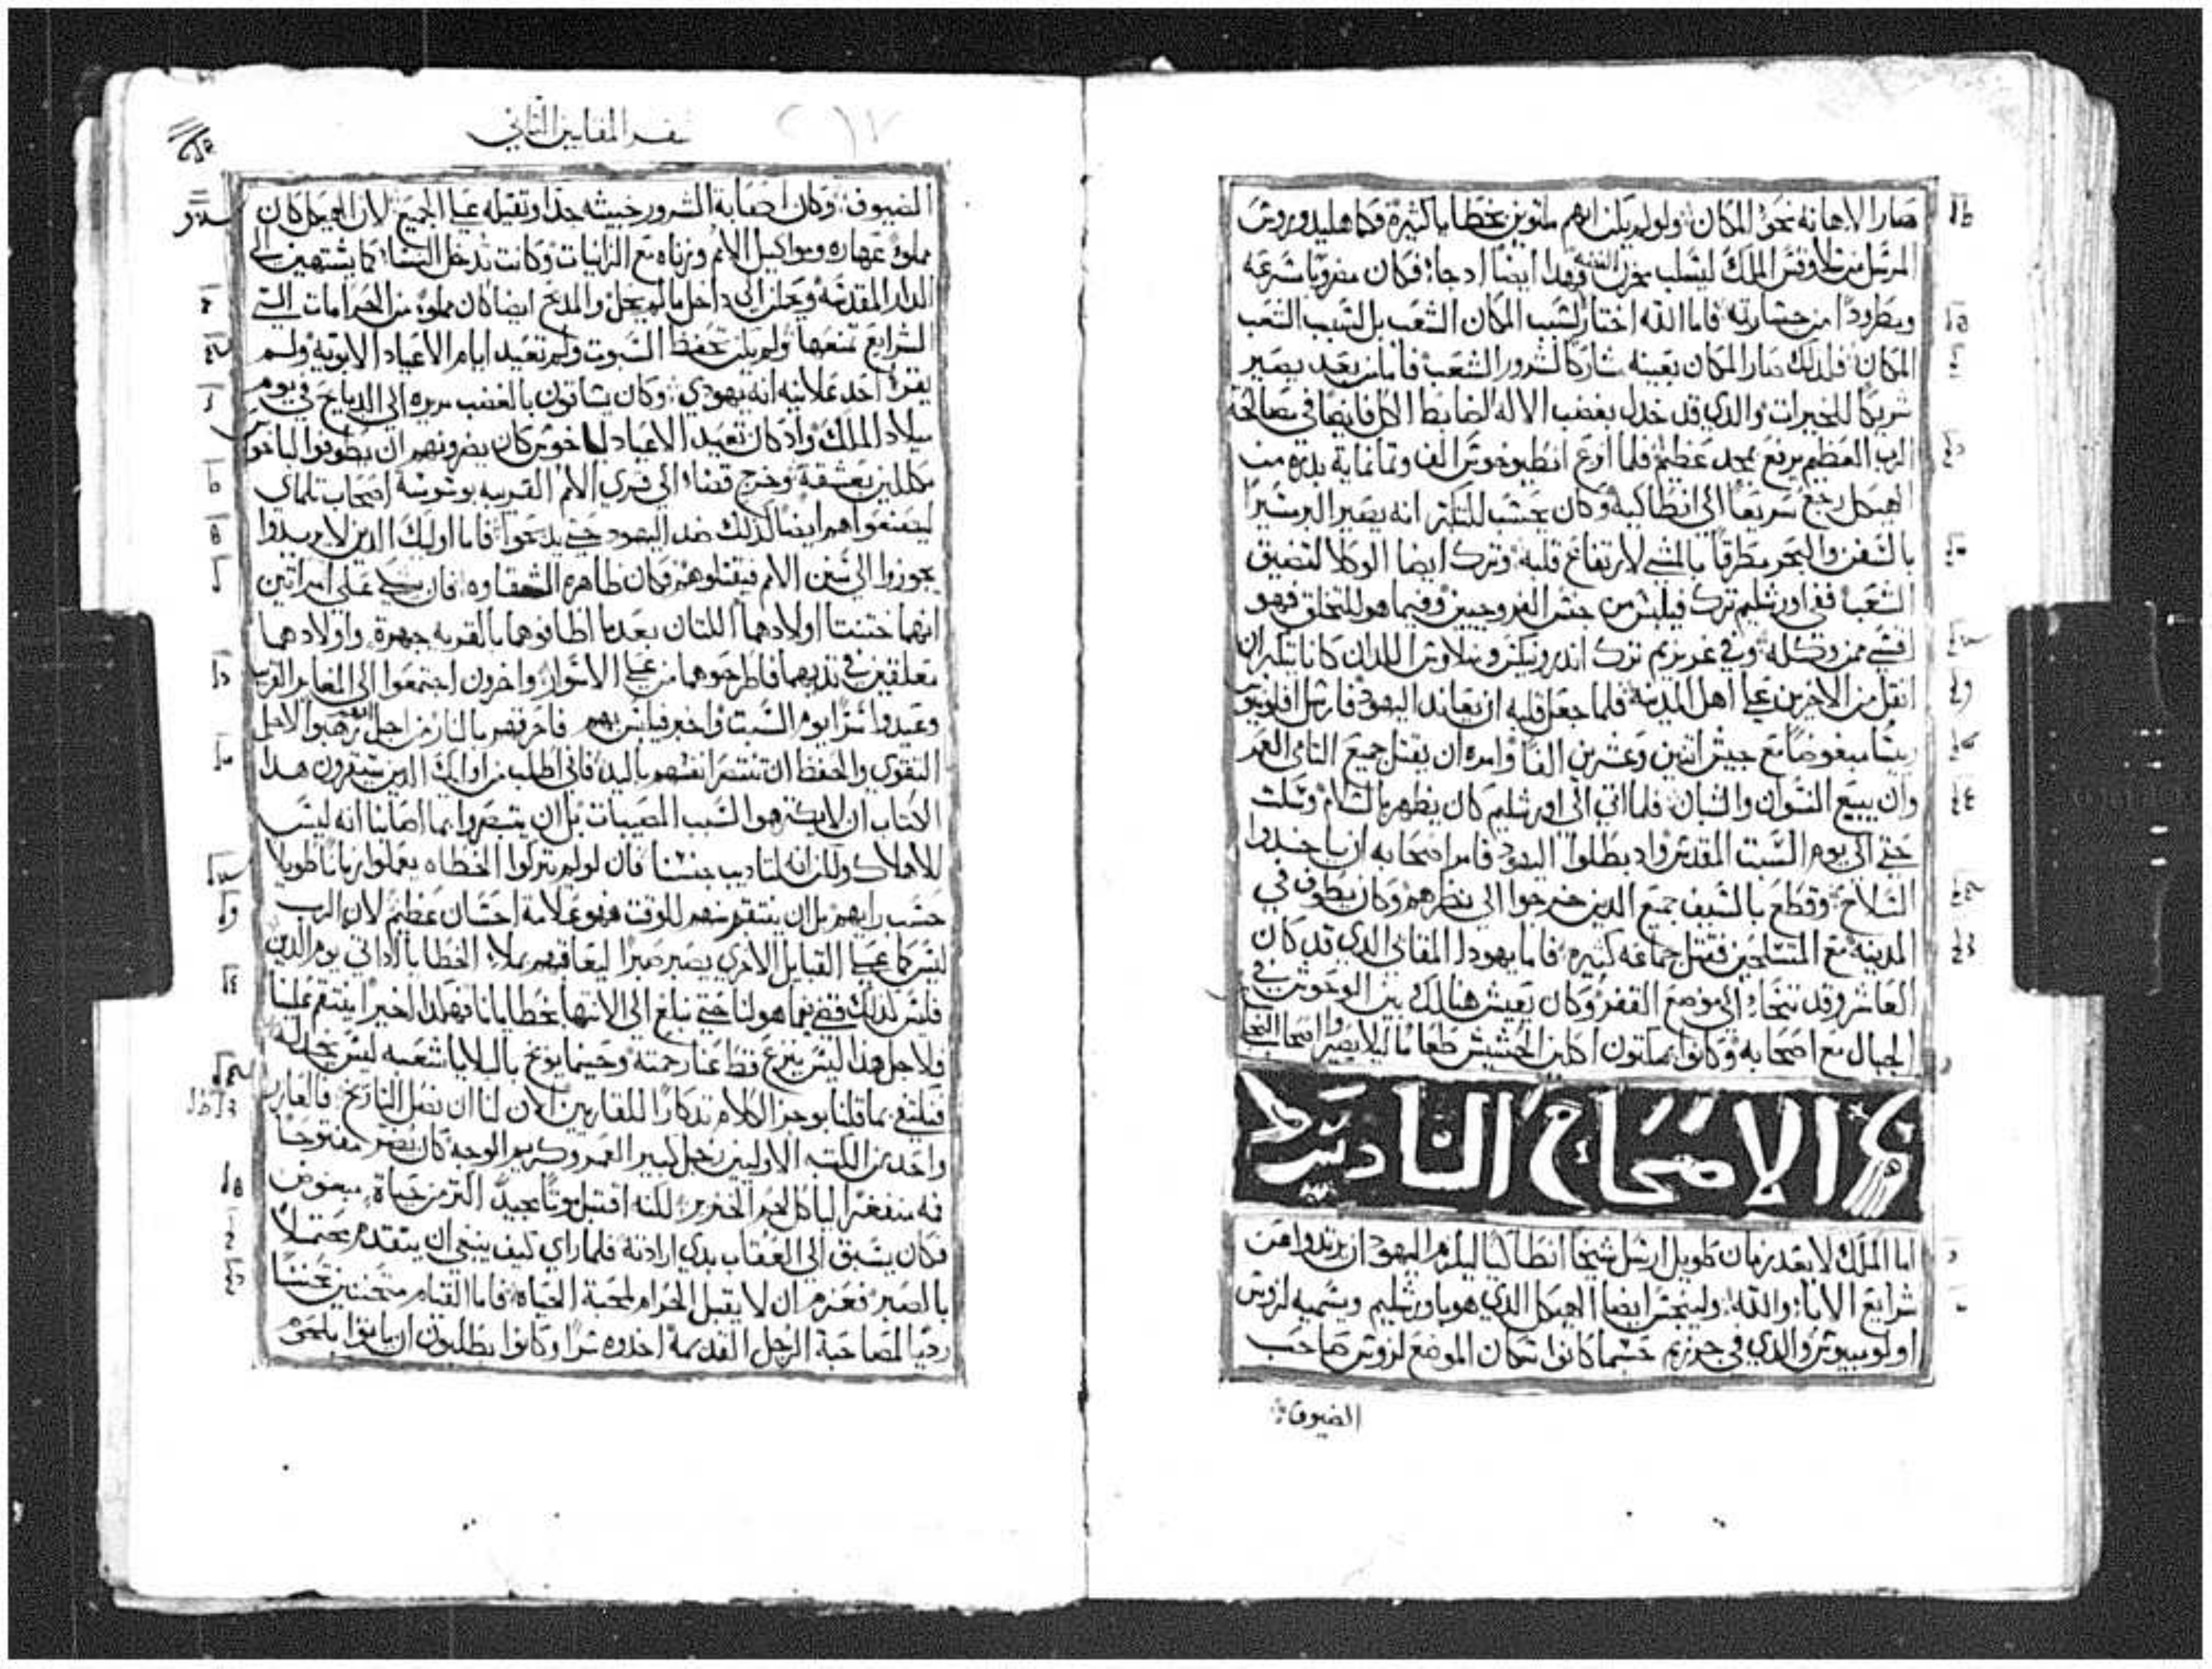 صار الاهانه نحو المكان ولو لم يكن انهم ماتوين بخطايا كثيرة فكما هليدوروش
المرسل من سلاوقس الملك ليسلب مخزن فهذا ايضا اذ جاء فكان مضروبا سرعه
ومطرودا من جسارته فاما الله اختار لسبب المكان الشعب بل لسبب الشعب
المكان فلذلك صار المكان بعينه شاركا لشرور الشعب فاما من بعد يصير
شريكا للخيرات والذي قد خذل بغضب الاله الضابط الكل فايضا في مصالحة
الرب العظيم يرفع بمجد عظيم فلما اوع انطيوخوش الف وثمانماية بدره من
الهيكل رجع سريعا الى انطاكيه وكان يحسب للتكبر انه يصير البر مسيرا
بالسفن والبحر مطرقا بالمشي لارتفاع قلبه وترك ايضا الوكلا لتضيق
الشعب ففي اورشليم ترك فيلبس من جنس الفروجيين وفيما هو للتخلق فهو
اقسي ممن وكله وفي غريزيم ترك اندرونيكز ومنلاوش اللذان كانا يتكبران
اثقل من الاخرين على اهل المدينة فلما جعل قلبه ان يعاند اليهود فارسل افلونيو
ريسا مبغوضا مع جيش اثنين وعشرين الفا وامره ان يقتل جميع التامي العمر
وان يبيع النسوان والشبان فلما اتى الى اورشليم كان يظهر بالسلام وسكت
حتي الى يوم السبت المقدس واذ بطلوا اليهود فامر اصحابه ان ياخذوا
السلاح وقطع بالسيف جميع الذين خرجوا الى نظرهم وكان يطوف في
المدينة مع المتسلحين فقتل جماعه كثيره فاما يهودا المقابي الذي قد كان
العاشر وقد تنحاء الى موضع القفر وكان يعيش هنالك بين الوحوش في
الجبال مع اصحابه وكانوا يمكثون اكلين الحشيش طعاما ليلا يصيروا اصحاب
الاصحاح السادس
اما الملك لا بعد زمان طويل ارسل شيخا انطاكيا ليلزم اليهود ان يرتدوا من
شرايع الابا والله ولينجس ايضا الهيكل الذي هو باورشليم ويسميه لزوش
اولومبيوش والذي في جرزيم حسبما كانوا سكان الموضع لزوش صاحب
الضيوف
سفر المقابيين الثاني
الضيوف وكان اصابة الشرور خبيثه جدا وثقيله على الجميع لان الهيكل كان
مملوء عهاره ومواكيل الامم وزناه مع الزانيات وكانت تدخل النساء كما يشتهين الى
الدار المقدسه وحملن الى داخل ما لم يحل والمذبح ايضا كان مملوء من الحرامات التي
الشرايع تمنعها ولم يكن تحفظ السبوت ولم تعيد ايام الاعياد الابوية ولم
يقر احد علانيه انه يهودي وكان يساقون بالغضب مريره الى الدبايح في يوم
ميلاد الملك واذ كان تعيد الاعياد لباخوس كان يضرونهم ان يطوفوا لباخوس
مكللين بعشقة وخرج قضاء الى قري الامم القريبه بوشوسة اصحاب تلماي
ليصنعوا هم ايضا كذلك ضد اليهود حتي يدبحوا فاما اوليك الذين لا يريدوا
يجوزوا الى سنن الامم فيقتلوهم فكان ظاهره الشقاوه فان علي امراتين
انهما ختنتا اولادهما اللتان بعدما اطافوهما بالقريه جهرة واولادهما
معلقين في ثديهما فاطرحوهما من على الاسوار واخرون اجتمعوا الى المغاير القريب
وعيدوا سرا يوم السبت واخبر فيلبس بهم فاحرقهم بالنار من اجل انهم رهبوا لاجل
التقوي والحفظ ان تنتصر انفسهم باليد فاني اطلب من اوليك الذين سيقرون هذا
الكتاب ان لا يكرهوا لسبب المصيبات بل ان يتبصروا بما اصابنا انه ليس
للاهلاك ولكن انه لتاديب جنسنا فان لو لم يتركوا الخطاه يعملوا زمانا طويلا
حسب رايهم بل ان ينتقم منهم للوقت فهو علامة احسان عظيم لان الرب
ليس كما على القبايل الاخري يصبر صبرا ليعاقبهم بملاء الخطايا اذا اتي يوم الدين
فليس كذلك قضي بما هو لنا حتي نبلغ الى الانتها بخطايانا فهكذا اخيرا ينتقم علينا
فلاجل هذا ليس ينزع قط عنا رحمته وحينما يوبخ بالبلايا شعبه ليس يخذله
فيكتفي بما قلنا بوجيز الكلام تذكارا للقاريين الان لنا ان نصل التاريخ فالعازر
واحد من الكتبه الاولين رجل كبير العمر وكريم الوجه كان يضر مفتوحا
فه منفغرا لياكل لحم الخنزير لكنه اقتبل موتا مجيدا اكثر من حياة مبغوض
فكان يسبق الى العقاب بذي ارادته فلما راي كيف ينبغي ان يتقدم محتملا
بالصبر فعزم ان لا يقبل الحرام لمحبة الحياة فاما القيام متحننين تحننا
رديا لمصاحبة الرجل القديمة اخذوه سرا وكانوا يطلبون ان ياتوا بلحم